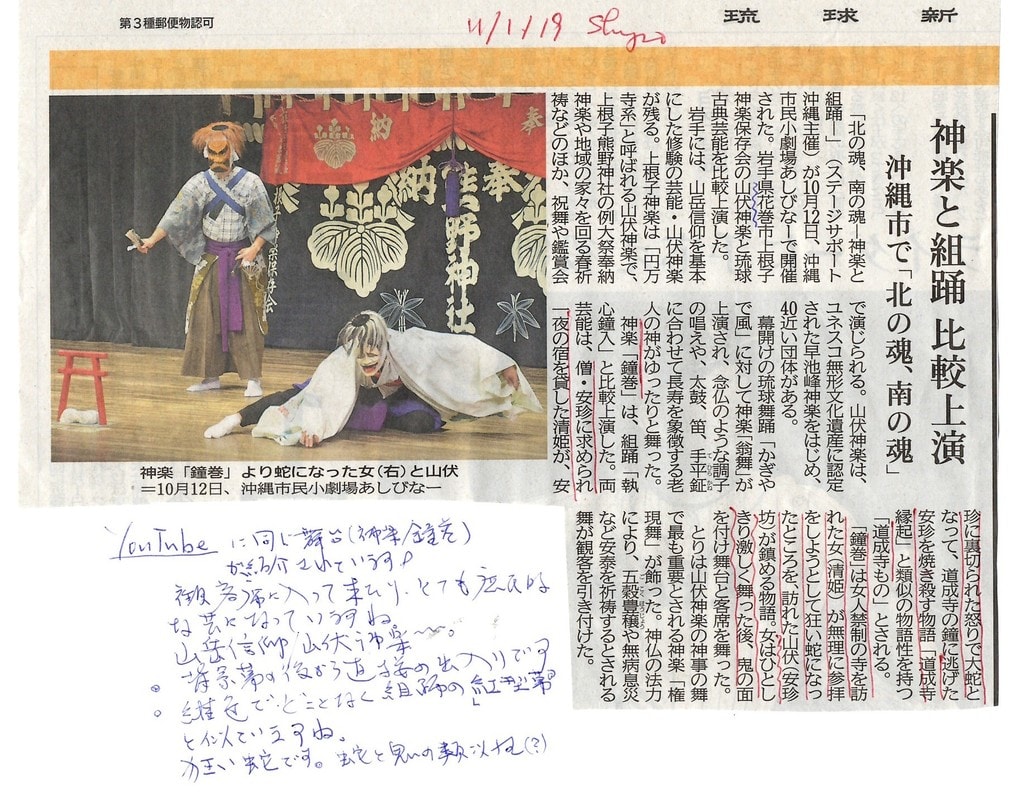 第3種郵便物認可
琉球新
11/1/19
神楽と組踊 比較上演
沖縄市で「北の魂、南の魂」
「北の魂、南の魂―神楽と
組踊―」(ステージサポート
沖縄主催)が10月12日、沖縄
市民小劇場あしびなーで開催
された。岩手県花巻市上根子
神楽保存会の山伏神楽と琉球
古典芸能を比較上演した。
岩手には、山岳信仰を基本
にした修験の芸能・山伏神楽
が残る。上根子神楽は「円万
寺系」と呼ばれる山伏神楽で、
上根子熊野神社の例大祭奉納
神楽や地域の家々を回る春祈
祷などのほか、祝舞や鑑賞会
で演じられる。山伏神楽は、
ユネスコ無形文化遺産に認定
された早池峰神楽をはじめ、
40近い団体がある。
幕開けの琉球舞踊「かぎや
で風」に対して神楽「翁舞」が
上演され、念仏のような調子
の唱えや、太鼓、笛、手平鉦
てびらがね
に合わせて長寿を象徴する老
人の神がゆったりと舞った。
神楽「鐘巻」は、組踊「執
心鐘入」と比較上演した。両
芸能は、僧・安珍に求められ
一夜の宿を貸した清姫が、安
珍に裏切られた怒りで大蛇と
なって、道成寺の鐘に逃げた
安珍を焼き殺す物語「道成寺
縁起」と類似の物語性を持つ
「道成寺もの」とされる。
「鐘巻」は女人禁制の寺を訪
れた女(清姫)が無理に参拝
をしようとして狂い蛇になっ
たところを、訪れた山伏(安珍
坊)が鎮める物語。女はひとし
きり激しく舞った後、鬼の面
を付け舞台と客席を舞った。
とりは山伏神楽の神事の舞
で最も重要とされる神楽「権
現舞」が飾った。神仏の法力
により、五穀豊穣や無病息災
など安泰を祈祷するとされる
舞が観客を引き付けた。
奉
納
奉
納
熊野神社
保存会
神楽「鐘巻」より蛇になった女(右)と山伏
=10月12日、沖縄市民小劇場あしびなー
YouTubeに同じ舞台(神楽/鐘巻)
が紹介されています!
客席に入って来たり、とても庶民的
な芸になっていますね。
山岳信仰 山伏神楽〜。
背景幕の後から直接の出入りです
どことなく組踊の「紅型幕」
と似ていますね。
狂い蛇です。蛇と鬼の類似性(?)